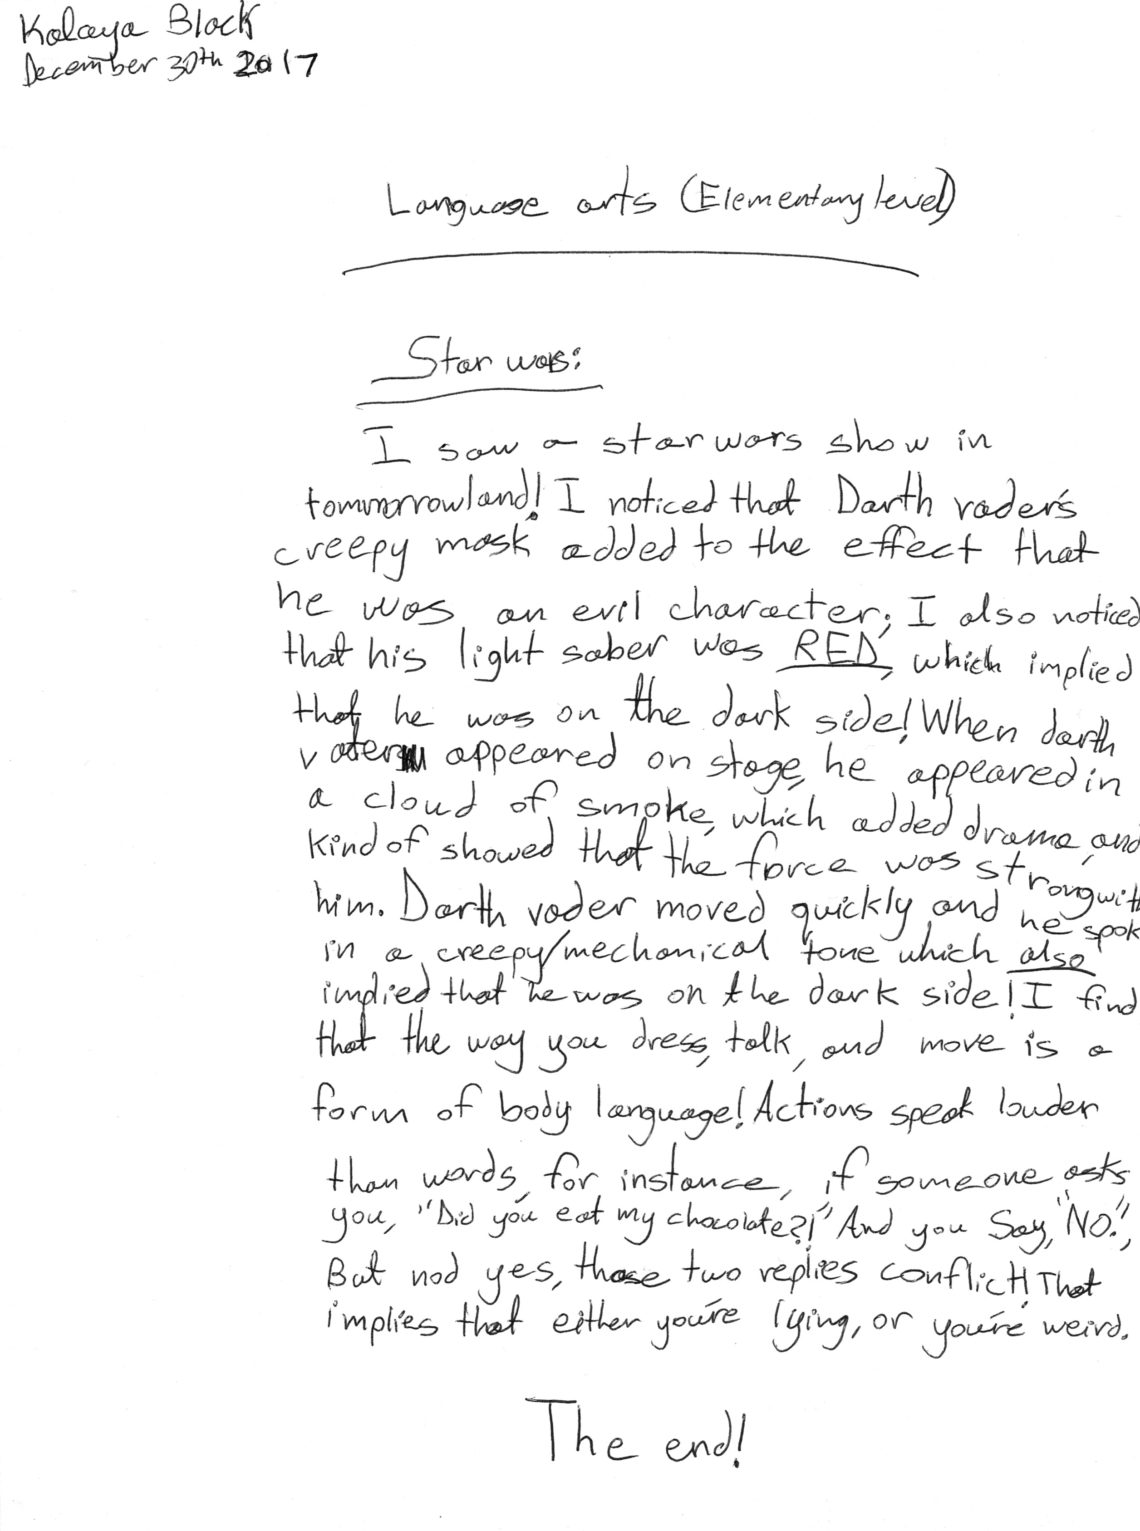 Kalaya Block
December 30th 2017
Language arts (Elementary level)
Star wars:
I saw a star wars show in
tommorrowland! I noticed that Darth vader's
creepy mask added to the effect that
he was an evil character; I also noticed
that his light saber was RED, which implied
that he was on the dark side! When darth
vater appeared on stage, he appeared in
a cloud of smoke, which added drama, and
kind of showed that the force was strong with
him. Darth vader moved quickly and he spok
in a creepy/mechanical tone which also
implied that he was on the dark side! I find
that the way you dress, talk, and move is a
form of body language! Actions speak louder
than words, for instance, if someone asks
you, "Did you eat my chocolate?!" And you Say, "NO.",
But nod yes, those two replies conflict! That
implies that either you're lying, or you're weird.
The end!